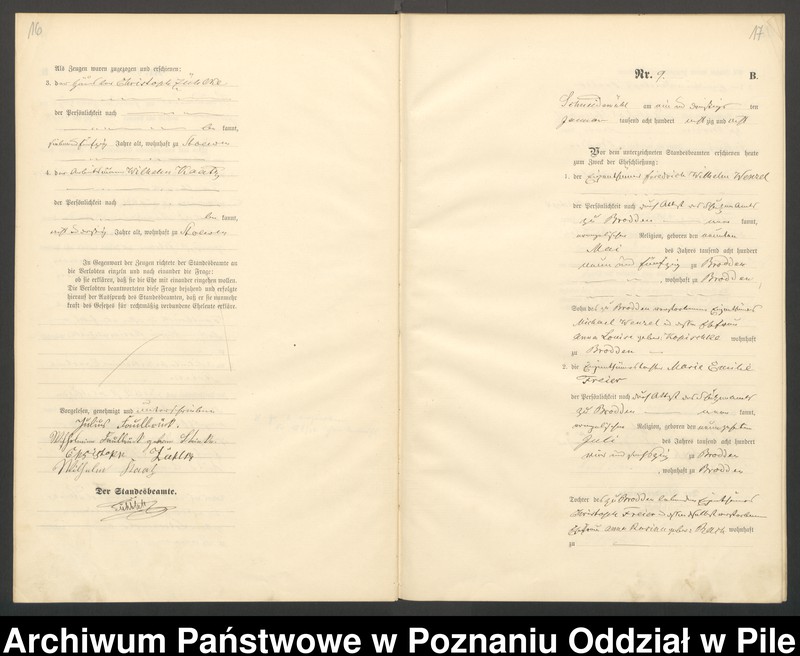 16
Als Zeugen waren zugezogen und erschienen:
3. der Christoph
der Persönlichkeit nach
kannt,
Jahre alt, wohnhaft zu Stoewen
4. der Wilhelm
der Persönlichkeit nach
kannt,
Jahre alt, wohnhaft zu Stoewen
In Gegenwart der Zeugen richtete der Standesbeamte an
die Verlobten einzeln und nach einander die Frage:
ob sie erklären, daß sie die Ehe mit einander eingehen wollen.
Die Verlobten beantworteten diese Frage bejahend und erfolgte
hierauf der Ausspruch des Standesbeamten, daß er sie nunmehr
kraft des Gesetzes für rechtmäßig verbundene Eheleute erkläre.
Vorgelesen, genehmigt und unterschrieben
Julius Faulhout.
Wilhelmine geboren
Wilhelm
Der Standesbeamte.
17
Nr. 9.
B.
Schneidemühl am ein und dreißigsten
Januar tausend acht hundert zig und
Vor dem unterzeichneten Standesbeamten erschienen heute
zum Zweck der Eheschließung:
1. der Eigenthümer Friedrich Wilhelm Wenzel
der Persönlichkeit nach durch Attest des Schulzenamts
zu Brodden kannt,
evangelischer Religion, geboren den neunten
Mai des Jahres tausend acht hundert
neun und fünfzig zu Brodden
, wohnhaft zu Brodden
Sohn des zu Brodden verstorbenen Eigenthümers
Michael Wenzel und dessen Ehefrau
Anna Louise geborne Kopischke wohnhaft
zu Brodden
2. die Eigenthümerstochter Marie Emilie
Freier
der Persönlichkeit nach durch Attest des Schulzenamts
zu Brodden kannt,
evangelischer Religion, geboren den neunzehnten
Juli des Jahres tausend acht hundert
vier und sechszig zu Brodden
, wohnhaft zu Brodden
Tochter des zu Brodden lebenden Eigenthümers
Christoph Freier und dessen daselbst verstorbenen
Ehefrau Anna geborne wohnhaft
zu
Archiwum Państwowe w Poznaniu Oddział w Pile